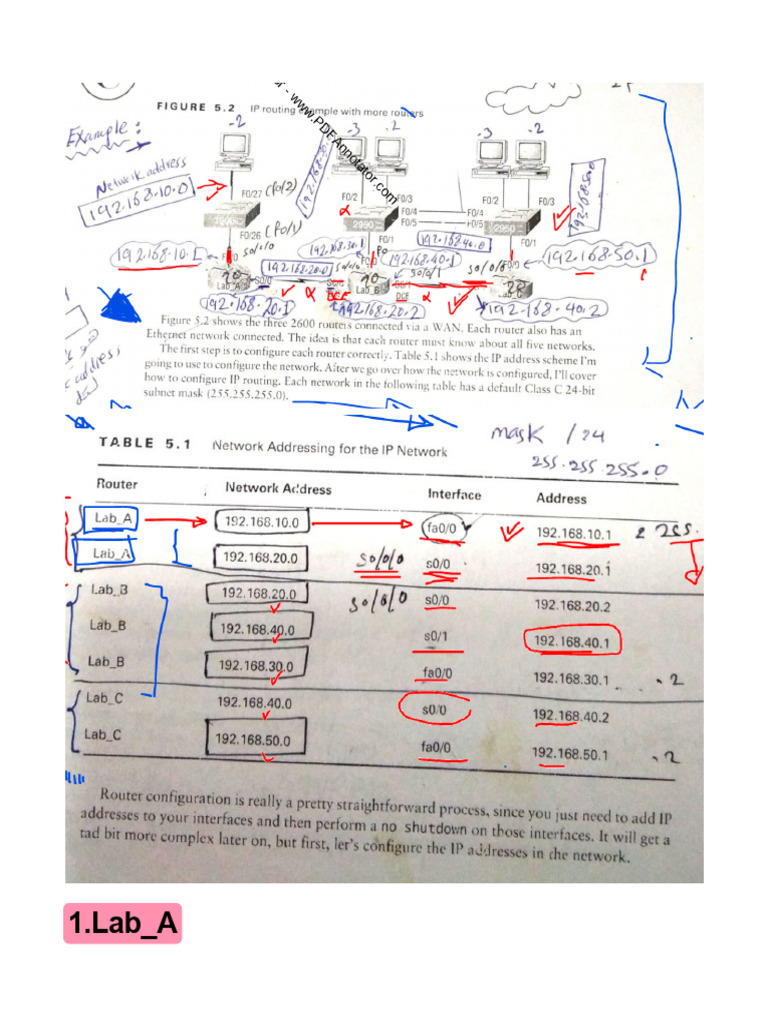 FIGURE 5.2 IP routing example with more routers
www.PDFAnnotator.com
Example:
-2
-3 .2
-3 -2
Network address
192.168.10.0
F0/27 (f0/2)
F0/26 (f0/1)
F0/2 F0/3
F0/4
F0/1
2950
F0/2 F0/3
F0/4
F0/5
F0/1
2950
192.168.10.1
s0/0/0
192.168.20.0
192.168.30.1
192.168.40.1
192.168.40.0
s0/0/1
192.168.50.1
Lab_A
Lab_B
Lab_C
192.168.20.1
192.168.20.2
192.168.40.2
Figure 5.2 shows the three 2600 routers connected via a WAN. Each router also has an
Ethernet network connected. The idea is that each router must know about all five networks.
The first step is to configure each router correctly. Table 5.1 shows the IP address scheme I'm
going to use to configure the network. After we go over how the network is configured, I'll cover
how to configure IP routing. Each network in the following table has a default Class C 24-bit
subnet mask (255.255.255.0).
address
mask /24
255.255.255.0
TABLE 5.1 Network Addressing for the IP Network
Router Network Address Interface Address
Lab_A 192.168.10.0 fa0/0 192.168.10.1
Lab_A 192.168.20.0 s0/0/0 s0/0 192.168.20.1
Lab_B 192.168.20.0 s0/0/0 s0/0 192.168.20.2
Lab_B 192.168.40.0 s0/1 192.168.40.1
Lab_B 192.168.30.0 fa0/0 192.168.30.1 .2
Lab_C 192.168.40.0 s0/0 192.168.40.2
Lab_C 192.168.50.0 fa0/0 192.168.50.1 .2
Router configuration is really a pretty straightforward process, since you just need to add IP
addresses to your interfaces and then perform a no shutdown on those interfaces. It will get a
tad bit more complex later on, but first, let's configure the IP addresses in the network.
1.Lab_A